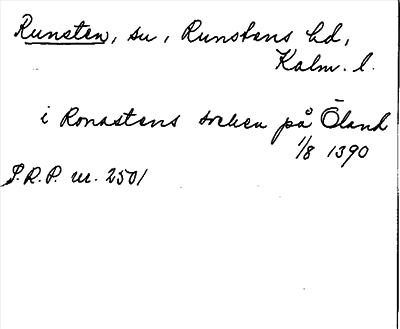 Runsten, sn, Runstens hd,
Kalm. l.
i Ronastens sochen på Öland
1/8 1390
S.R.P. nr. 2501